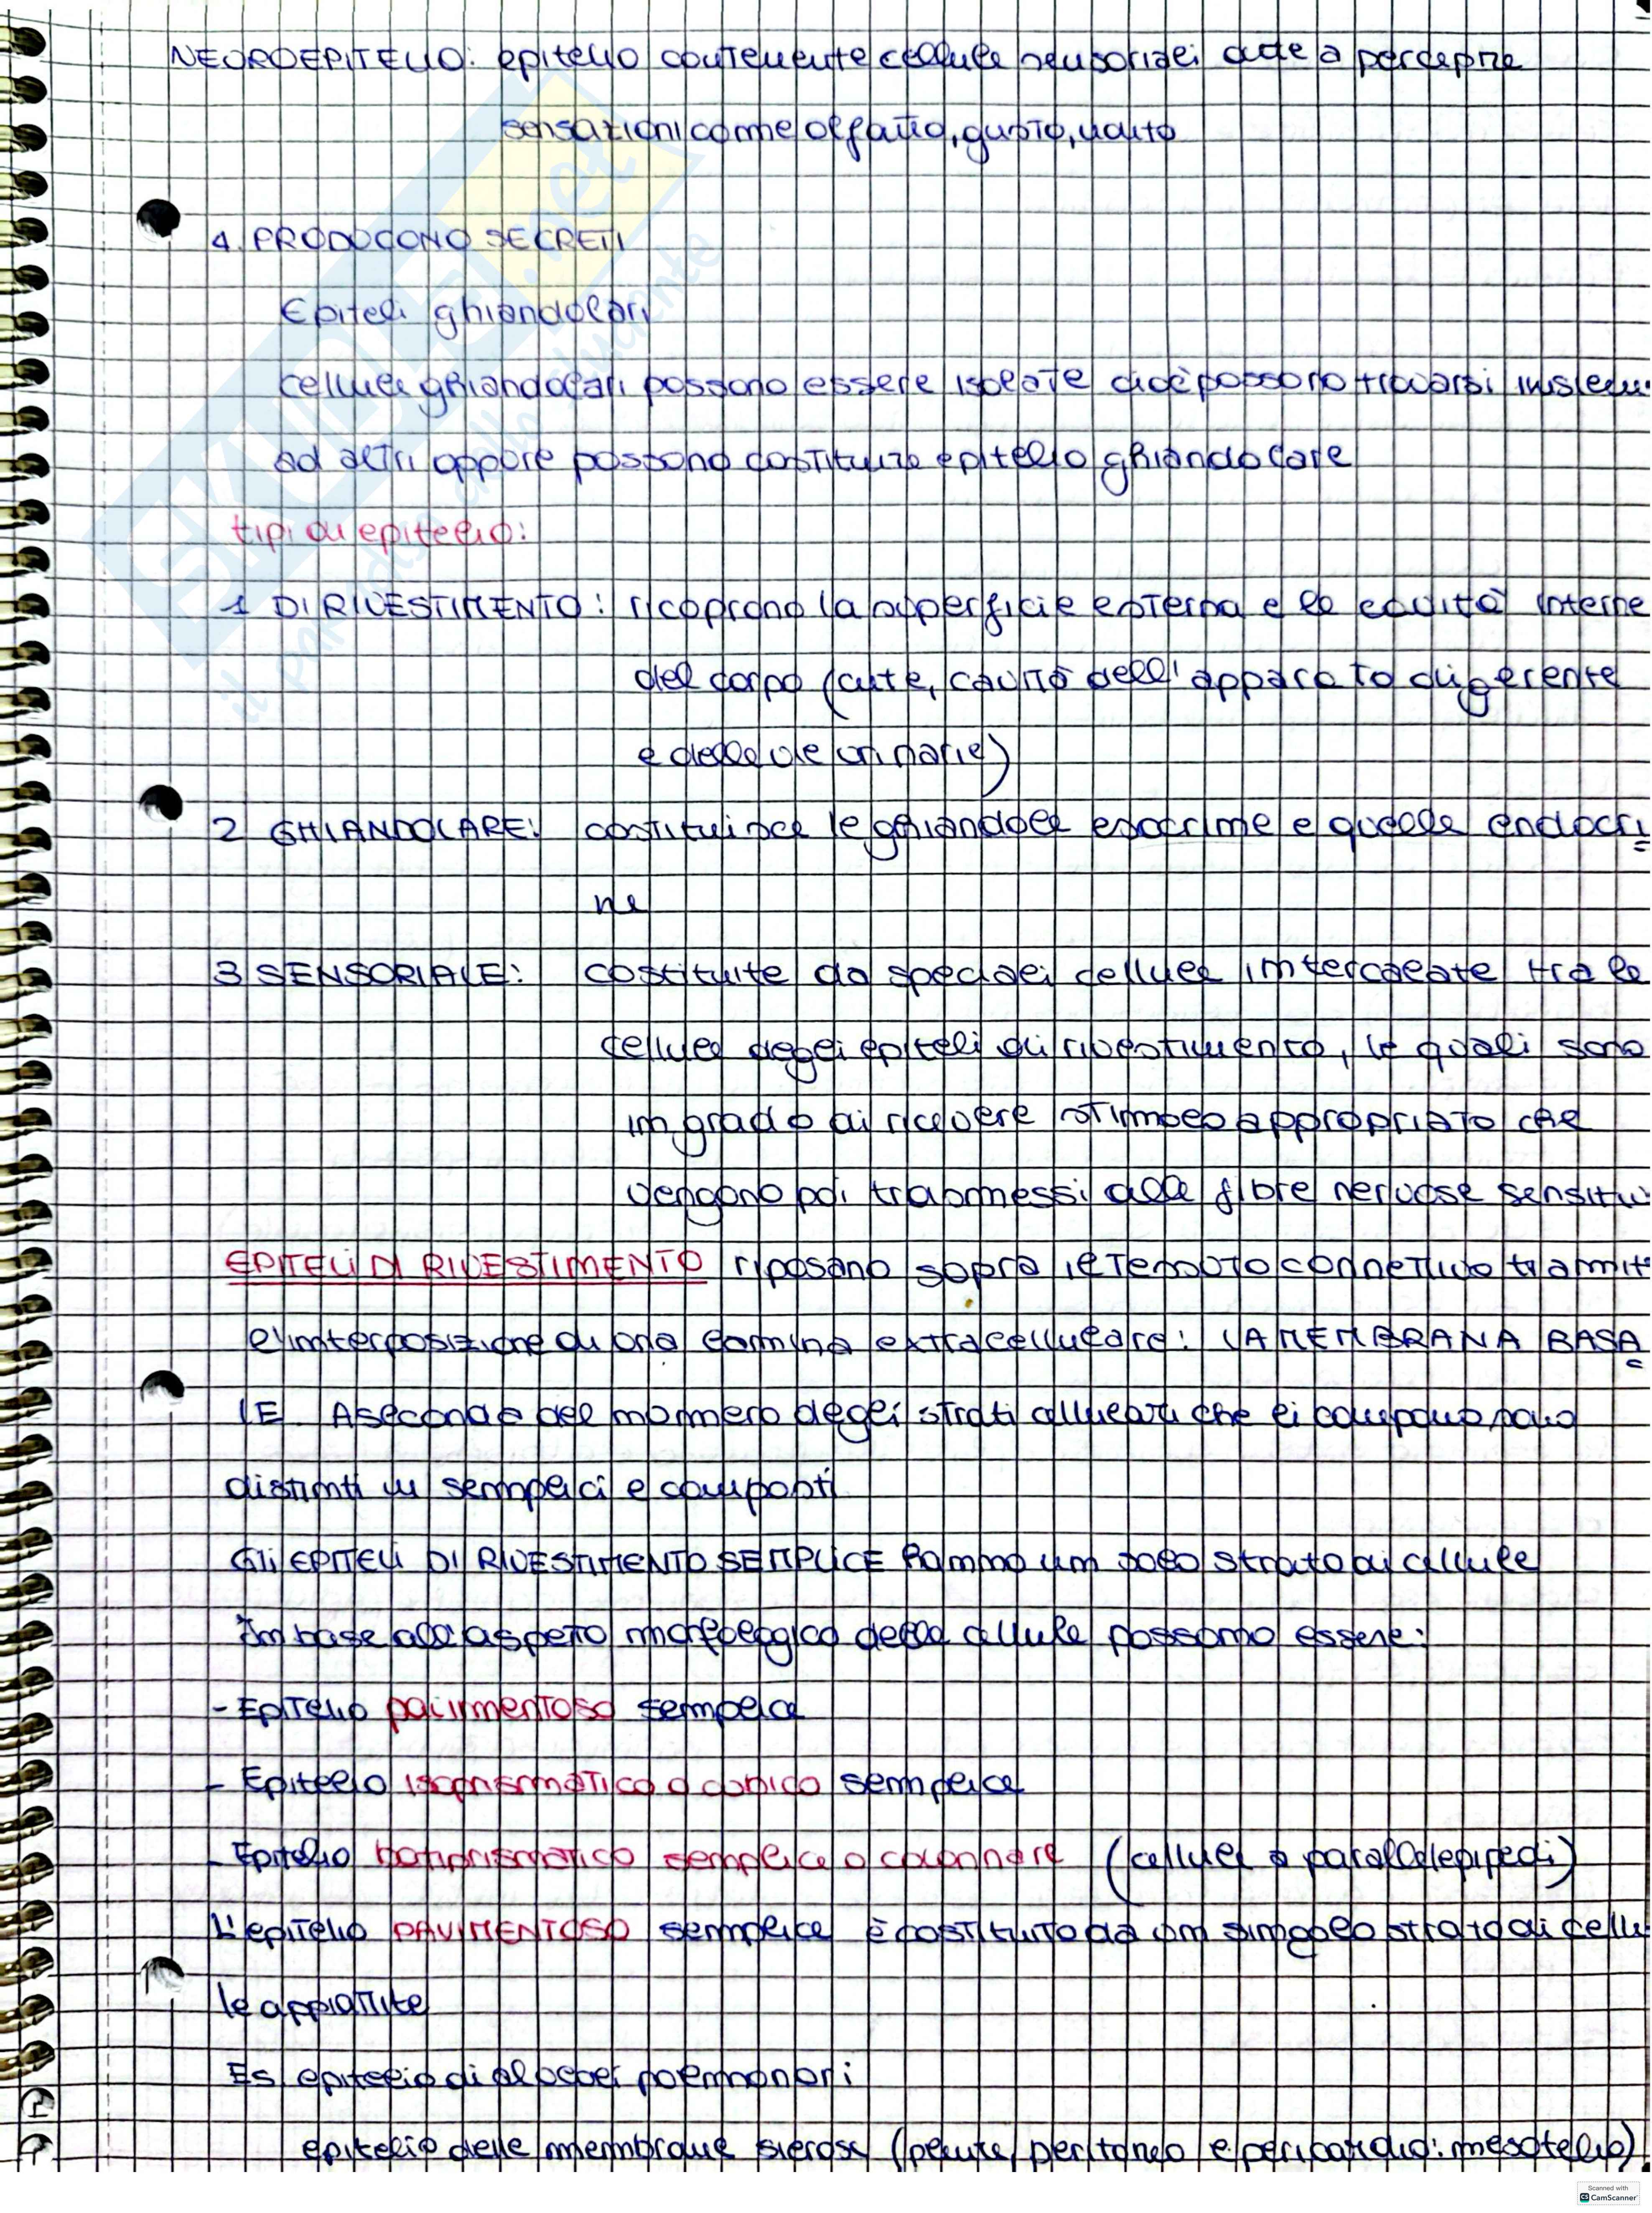 NEUROEPITELIO: epitelio contenente cellule sensoriali atte a percepire
sensazioni come olfatto, gusto, udito
4. PRODUCONO SECRETI
Epiteli ghiandolari
cellule ghiandolari possono essere isolate cioè possono trovarsi insieme
ad altri oppure possono costituire epitelio ghiandolare
tipi di epitelio:
1 DI RIVESTIMENTO: ricoprono la superficie esterna e le cavità interne
del corpo (cute, cavità dell'apparato digerente
e delle vie urinarie)
2 GHIANDOLARE: costituisce le ghiandole esocrine e quelle endocri
ne
3 SENSORIALE: costituite da speciali cellule intercalate tra le
cellule degli epiteli di rivestimento, le quali sono
in grado di ricevere stimolo appropriato che
vengono poi trasmessi alle fibre nervose sensitiv
EPITELI DI RIVESTIMENTO riposano sopra il tessuto connettivo tramit
e l'interposizione di una lamina extracellulare: LA MEMBRANA BASA
LE. A seconda del numero degli strati cellulari che li compongono sono
distinti in semplici e composti
Gli EPITELI DI RIVESTIMENTO SEMPLICE hanno un solo strato di cellule
In base all'aspetto morfologico della cellule possono essere:
- Epitelio pavimentoso semplice
- Epitelio isoprismatico o cubico semplice
- Epitelio batiprismatico semplice o colonnare (cellule a parallelepipedi)
L'epitelio PAVIMENTOSO semplice è costituito da un singolo strato di cellu
le appiattite
Es epitelio di alveoli polmonari
epitelio delle membrane sierose (pleure, peritoneo e pericardio: mesotelio)
SKUOLA.net
il paradiso dello studente
Scanned with
CS CamScanner